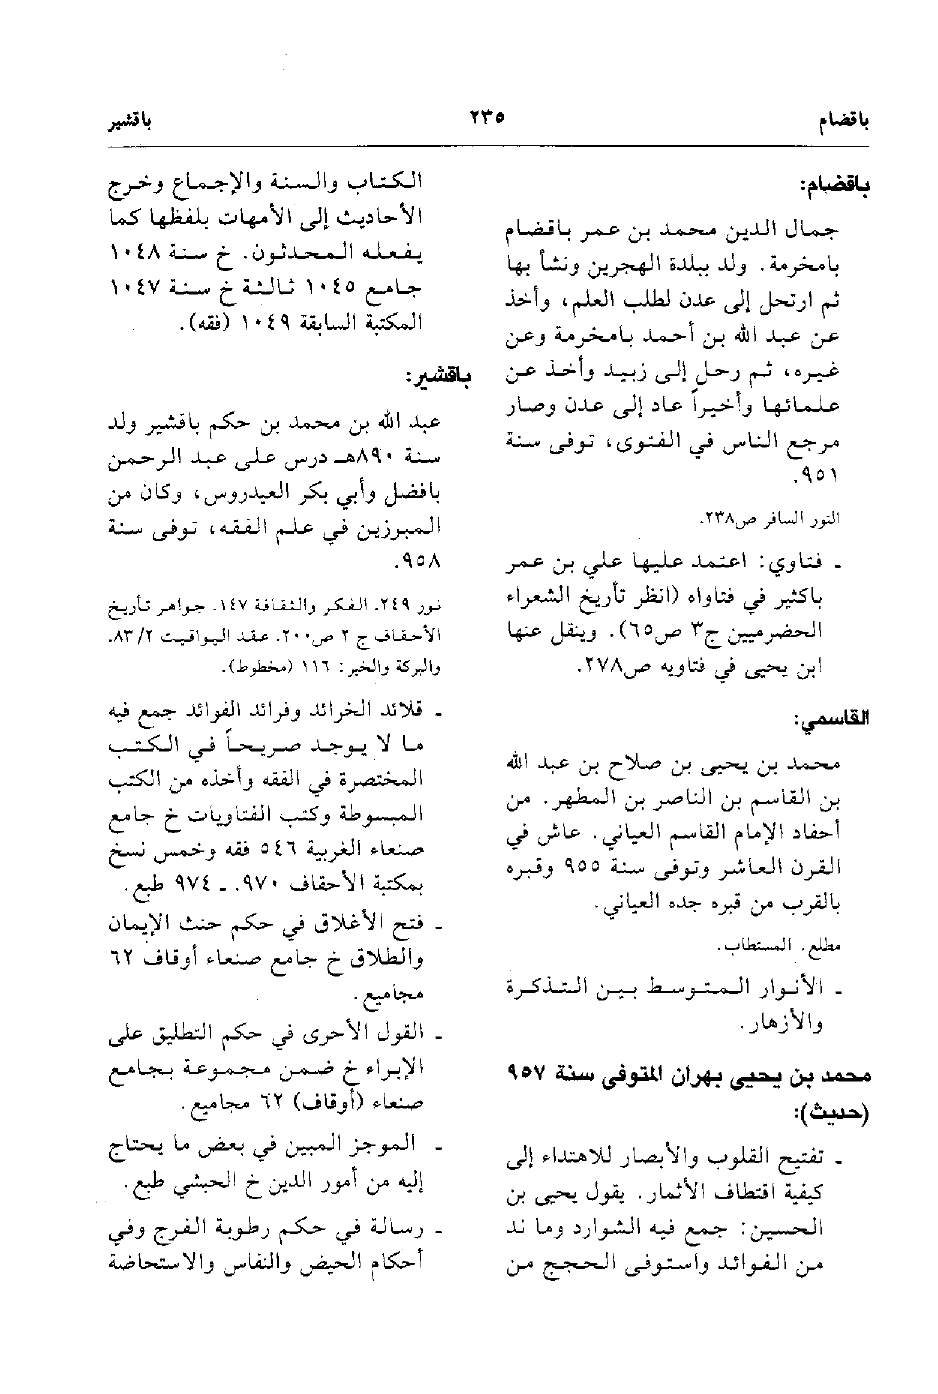 باقضام ٢٣٥ باقشير
باقضام:
جمال الدين محمد بن عمر باقضام
بامخرمة. ولد ببلدة الهجرين ونشأ بها
ثم ارتحل إلى عدن لطلب العلم، وأخذ
عن عبد الله بن أحمد بامخرمة وعن
غيره، ثم رحل إلى زبيد وأخذ عن
علمائها وأخيراً عاد إلى عدن وصار
مرجع الناس في الفتوى، توفى سنة
٩٥١.
النور السافر ص٢٣٨.
ـ فتاوي: اعتمد عليها علي بن عمر
باكثير في فتاواه (انظر تأريخ الشعراء
الحضرميين ج٣ ص٦٥). وينقل عنها
ابن يحيى في فتاويه ص٢٧٨.
القاسمي:
محمد بن يحيى بن صلاح بن عبد الله
بن القاسم بن الناصر بن المطهر. من
أحفاد الإمام القاسم العياني. عاش في
القرن العاشر وتوفى سنة ٩٥٥ وقبره
بالقرب من قبره جده العياني.
مطلع. المستطاب.
ـ الأنوار المتوسط بين التذكرة
والأزهار.
محمد بن يحيى بهران المتوفى سنة ٩٥٧
(حديث):
ـ تفتيح القلوب والأبصار للاهتداء إلى
كيفية اقتطاف الأثمار. يقول يحيى بن
الحسين: جمع فيه الشوارد وما ند
من الفوائد واستوفى الحجج من
الكتاب والسنة والإجماع وخرج
الأحاديث إلى الأمهات بلفظها كما
يفعله المحدثون. خ سنة ١٠٤٨
جامع ١٠٤٥ ثالثة خ سنة ١٠٤٧
المكتبة السابقة ١٠٤٩ (فقه).
باقشير:
عبد الله بن محمد بن حكم باقشير ولد
سنة ٨٩٠هـ درس على عبد الرحمن
بافضل وأبي بكر العيدروس، وكان من
المبرزين في علم الفقه، توفى سنة
٩٥٨.
نور ٢٤٩. الفكر والثقافة ١٤٧. جواهر تأريخ
الأحقاف ج ٢ ص٢٠٠. عقد اليواقيت ٨٣/٢.
والبركة والخير: ١١٦ (مخطوط).
ـ قلائد الخرائد وفرائد الفوائد جمع فيه
ما لا يوجد صريحاً في الكتب
المختصرة في الفقه وأخذه من الكتب
المبسوطة وكتب الفتاويات خ جامع
صنعاء الغربية ٥٤٦ فقه وخمس نسخ
بمكتبة الأحقاف ٩٧٠. ـ ٩٧٤ طبع.
ـ فتح الأغلاق في حكم حنث الإيمان
والطلاق خ جامع صنعاء أوقاف ٦٢
مجاميع.
ـ القول الأحرى في حكم التطليق على
الإبراء خ ضمن مجموعة بجامع
صنعاء (أوقاف) ٦٢ مجاميع.
ـ الموجز المبين في بعض ما يحتاج
إليه من أمور الدين خ الحبشي طبع.
ـ رسالة في حكم رطوبة الفرج وفي
أحكام الحيض والنفاس والاستحاضة